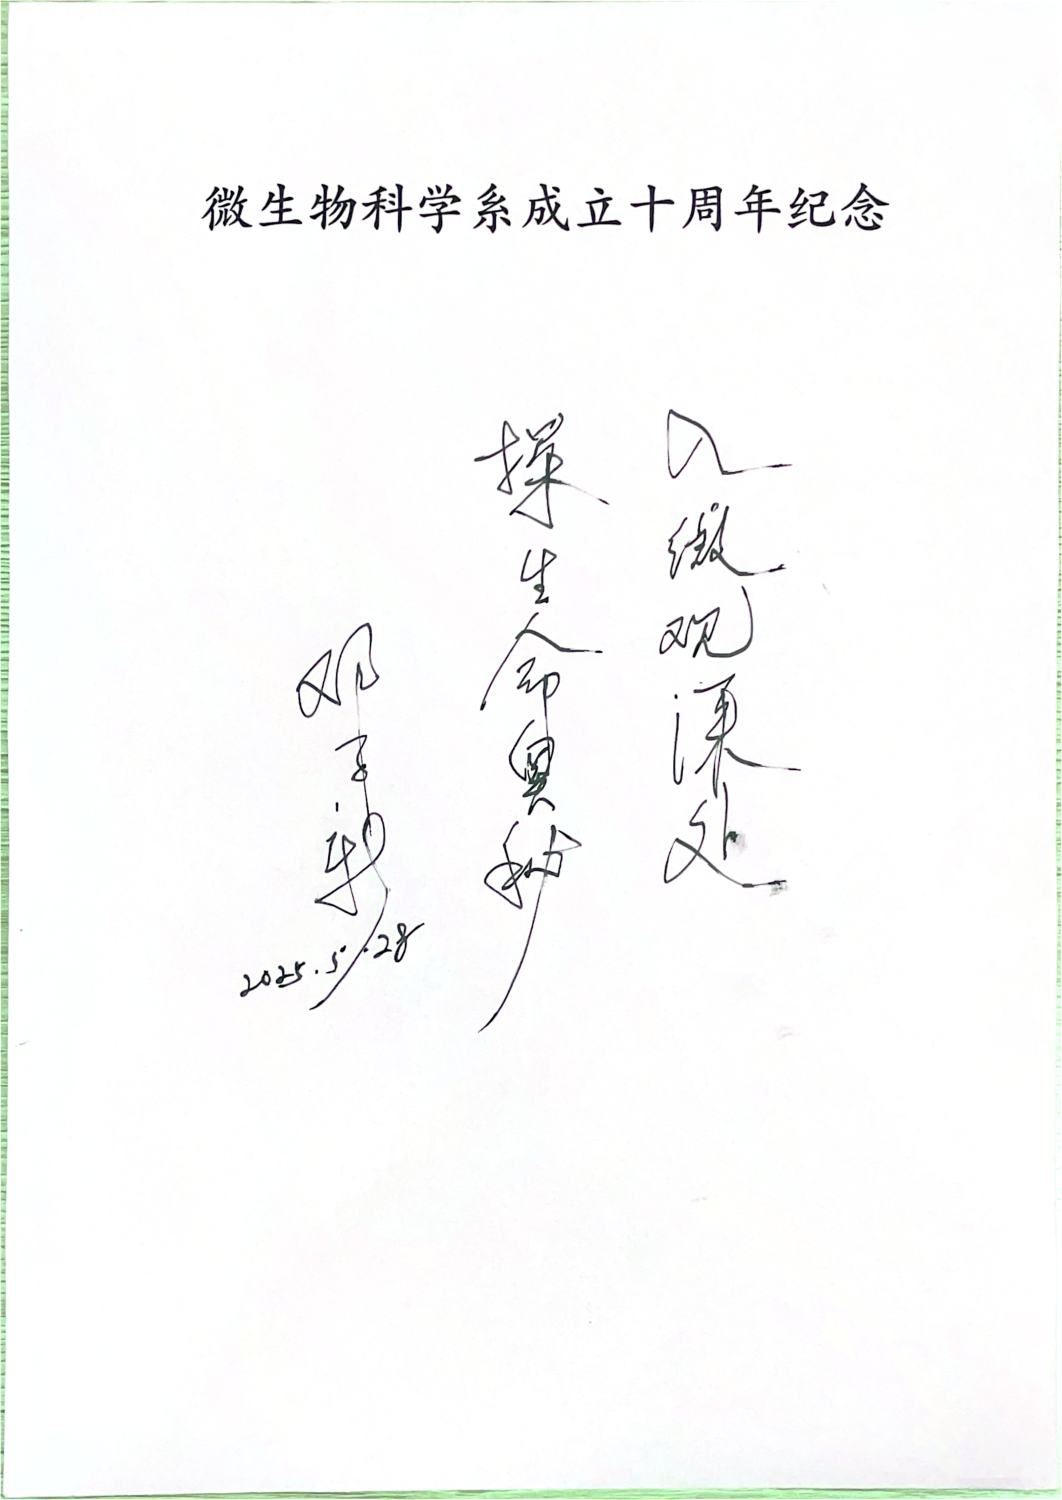 微生物科学系成立十周年纪念
入微观深处
探生命奥秘
邓子新
2025.5.28